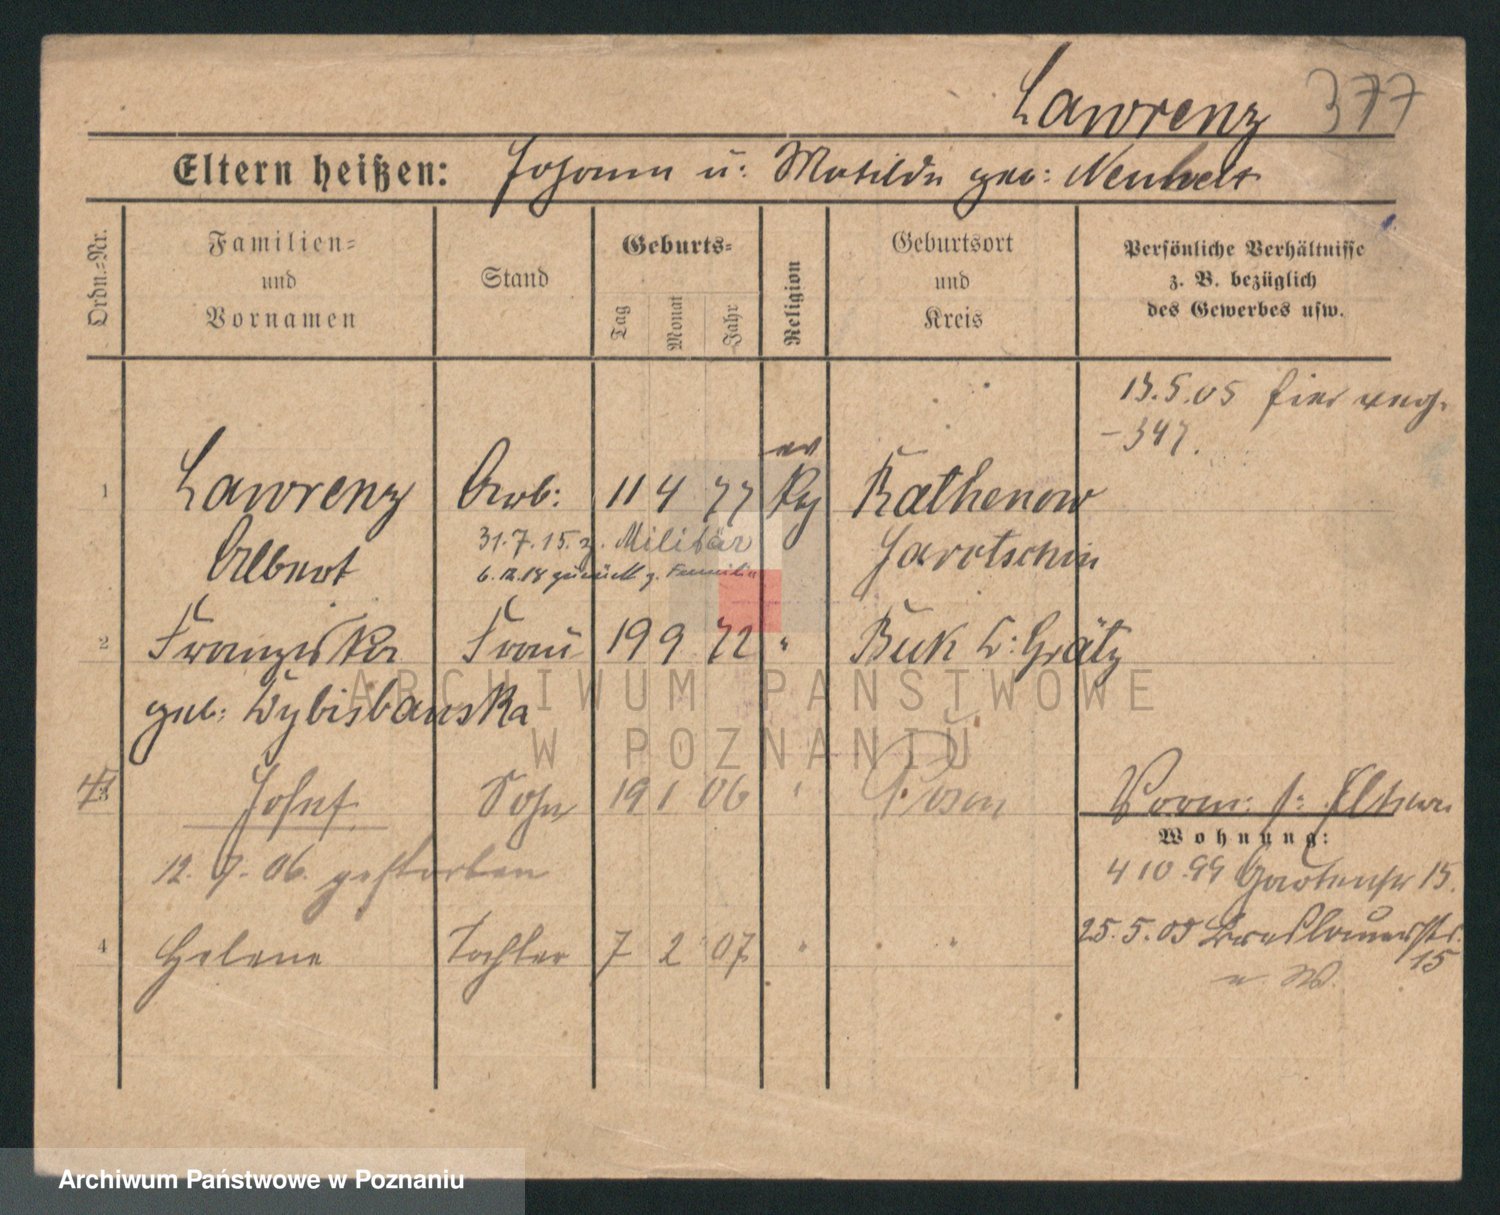 Lawrenz 377
Eltern heißen: Johann u: Matilde geb: Neuhelt
Ordn.=Nr.
Familien=
und
Vornamen
Stand
Geburts=
Tag
Monat
Jahr
Religion
Geburtsort
und
Kreis
Persönliche Verhältnisse
z. B. bezüglich
des Gewerbes usw.
13.5.05 hier
- 347.
ev
1 Lawrenz Arb: 11 4 77 Rathenow
31.7.15. z. Militär
Albert Jarotschin
6.12.18 zurück z. Familie
2 Franziska Frau 19 9 72 " Buk Kr: Grätz
geb: Wybisbanska
3 Josef Sohn 19 1 06 " Posen Vorm: s: Eltern
Wohnung:
12. 7. 06. gestorben
4 10.99 Gartenstr 15.
4 Helene Tochter 7 2 07 " " "
25.5.05 Breslauerstr.
15
n. W.
ARCHIWUM PAŃSTWOWE
W POZNANIU
Archiwum Państwowe w Poznaniu